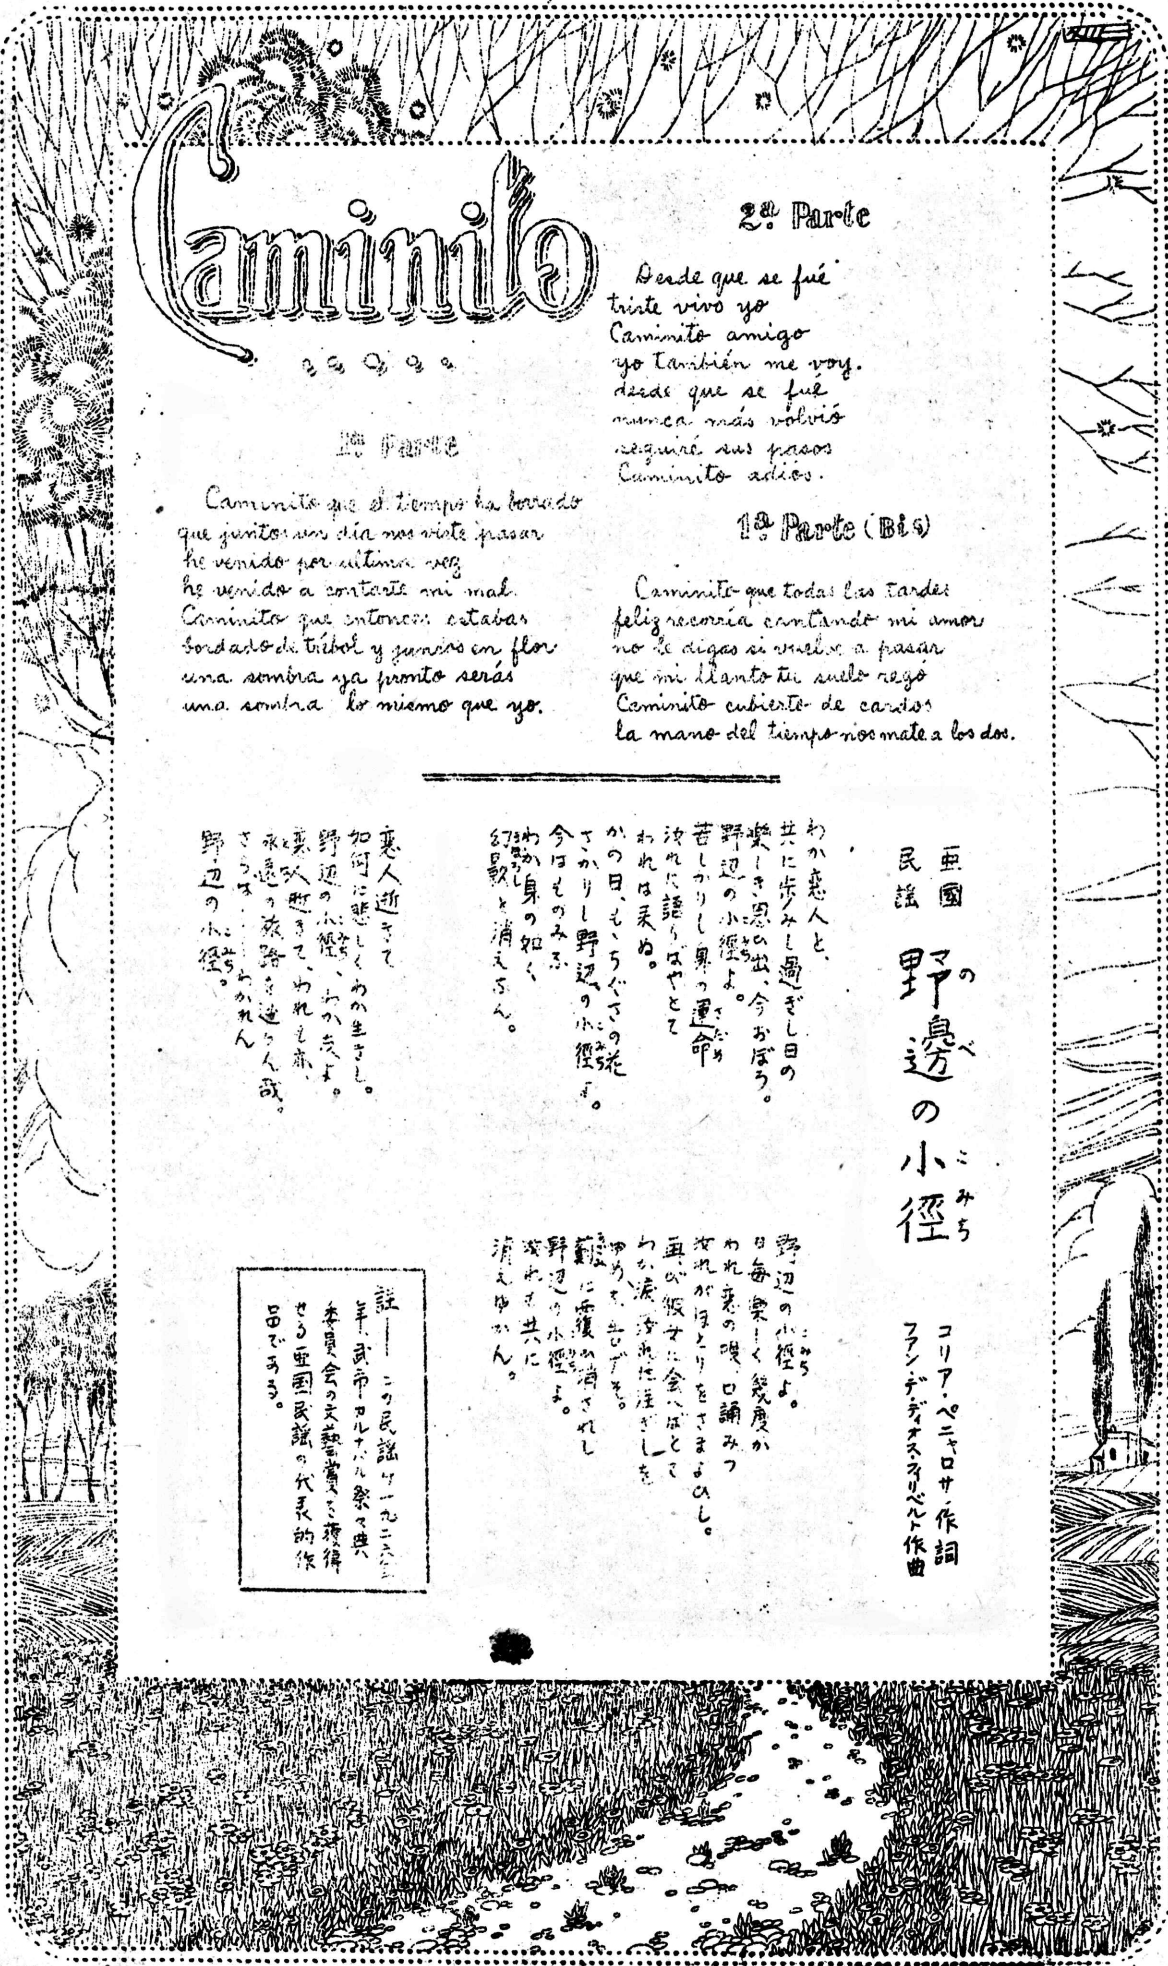 Caminito
1ª Parte
Caminito que el tiempo ha borrado
que juntos un día nos viste pasar
he venido por ultima vez
he venido a contarte mi mal.
Caminito que entonces estabas
bordado de trébol y juncos en flor
una sombra ya pronto serás
una sombra lo mismo que yo.
2ª Parte
Desde que se fué
triste vivo yo
Caminito amigo
yo también me voy.
desde que se fué
nunca más volvió
seguiré sus pasos
Caminito adiós.
1ª Parte (Bis)
Caminito que todas las tardes
feliz recorría cantando mi amor
no le digas si vuelve a pasar
que mi llanto tu suelo regó
Caminito cubierto de cardos
la mano del tiempo nos mate a los dos.
亜國
民謡
野邊の小徑
の べ こ みち
コリア・ペニャロサ作詞
フアン・デ・ディオス・フィリベルト作曲
わが恋人と、
共に歩みし過ぎし日の
楽しき思ひ出、今おぼろ。
野辺の小徑よ。
苦しかりし男の運命
汝れに語りばやとて
われは来ぬ。
かの日、もゝちぐさの花
さかりし野辺の小徑よ。
今はものみな
わが身の如く
幻影と消えなん。
恋人逝きて
如何に悲しくわが生きし。
野辺の小徑、わが友よ。
恋人逝きて、われも亦、
永遠の旅路を辿らん哉。
さらば……わかれん
野辺の小徑。
野辺の小徑よ。
日毎楽しく幾度か
われ恋の唄、口誦みつ
汝れがほとりをさまよひし。
再び彼女に会へばとて
わが涙、汝れに注ぎしを
ゆめ
薊に覆ひ消されし
野辺の小徑よ。
汝れも共に
消えゆかん。
註――この民謡は一九二六
年、武市カルナバル祭々典
委員会の文藝賞を獲得
せる亜国民謡の代表的作
品である。